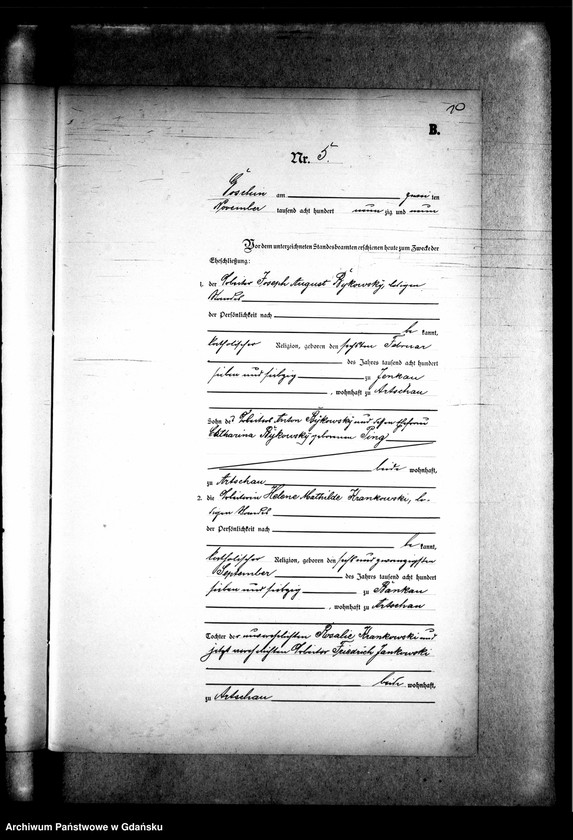 10
B.
Nr. 5.
Goschin am zwei ten
November tausend acht hundert neun zig und neun
Vor dem unterzeichneten Standesbeamten erschienen heute zum Zwecke der
Eheschließung:
1. der Arbeiter Joseph August Rykowsky, ledigen
Standes
der Persönlichkeit nach
be kannt,
katholischer Religion, geboren den sechsten Februar
des Jahres tausend acht hundert
sieben und siebzig zu Jenkau
, wohnhaft zu Artschau
Sohn des Arbeiters Anton Rykowsky und seiner Ehefrau
Catharina Rykowsky geborenen Ping
beide wohnhaft,
zu Artschau
2. die Arbeiterin Helene Mathilde Krankowski, le-
digen Standes
der Persönlichkeit nach
be kannt,
katholischer Religion, geboren den sechs und zwanzigsten
September des Jahres tausend acht hundert
sieben und siebzig zu Bankau
, wohnhaft zu Artschau
Tochter der unverehelichten Rosalie Krankowski und
jetzt verehelichten Arbeiter Friedrich Jankowski
beide wohnhaft,
zu Artschau
Archiwum Państwowe w Gdańsku